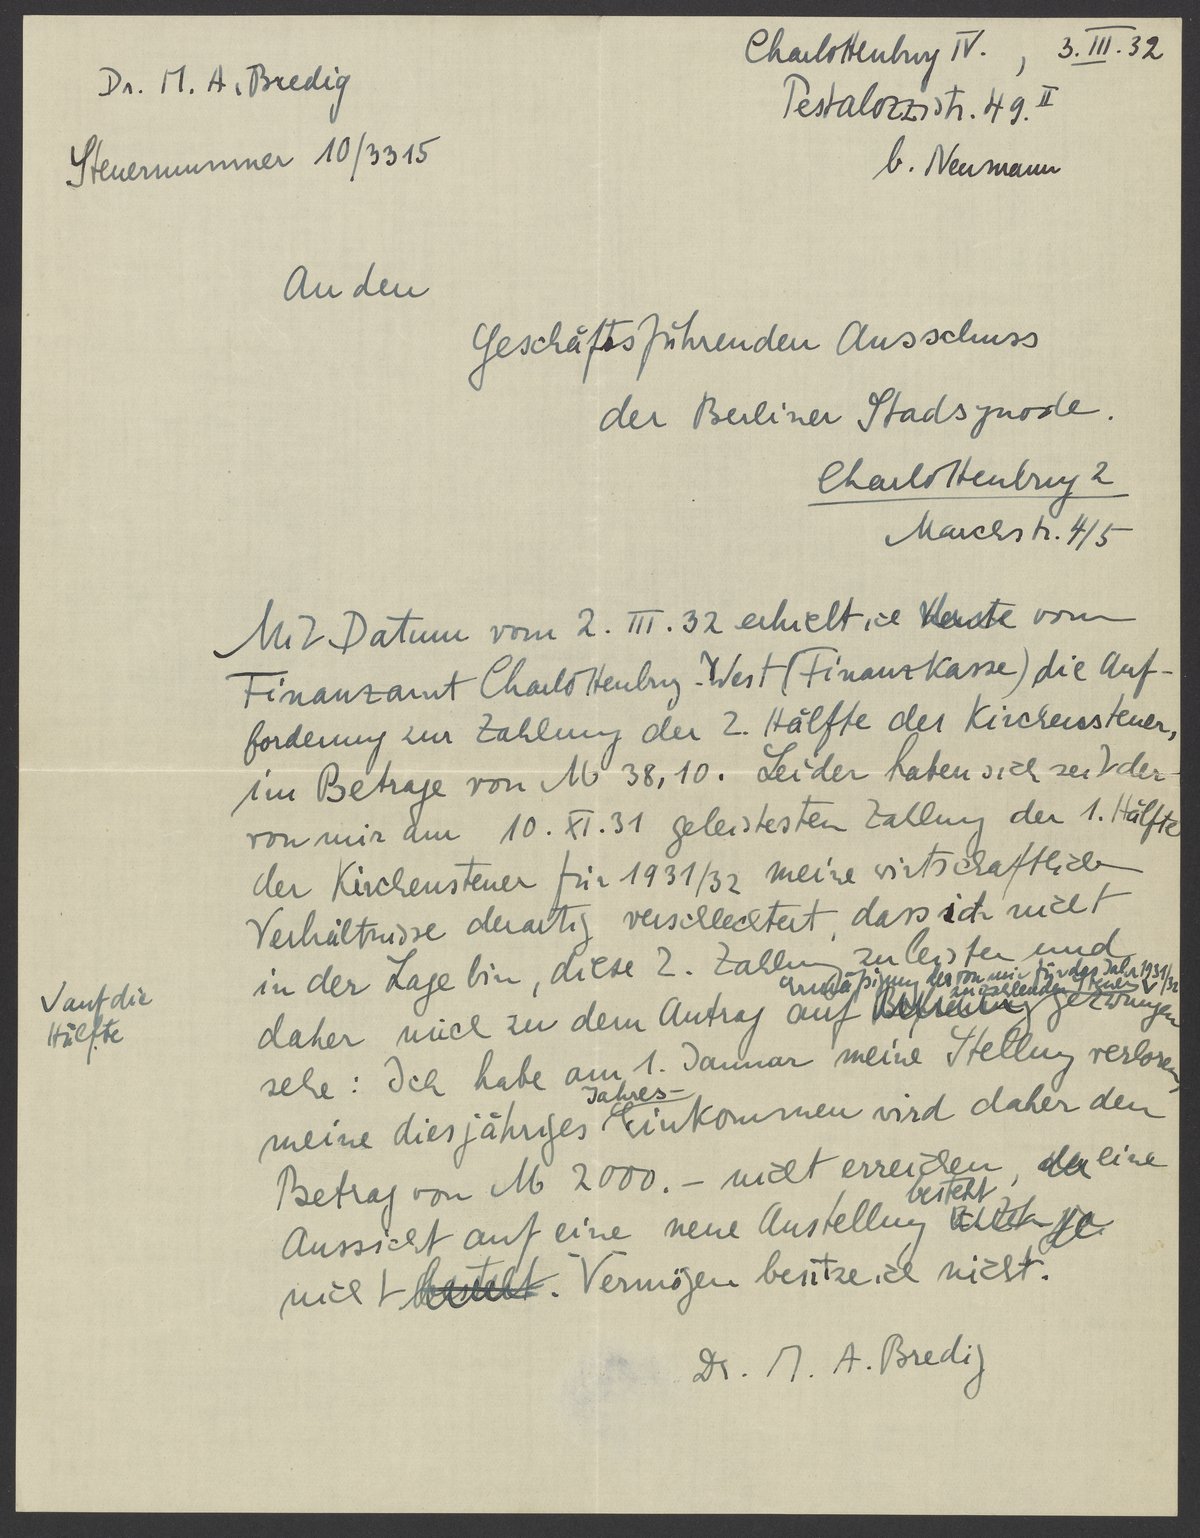 Charlottenburg IV. , 3.III.32
Dr. M. A. Bredig
Pestalozzistr. 49.II
Steuernummer 10/3315
b. Neumann
An den
Geschäftsführenden Ausschuss
der Berliner Stadsynode.
Charlottenburg 2
Marchstr. 4/5
Mit Datum vom 2. III. 32 erhielt ich heute vom
Finanzamt Charlottenburg-West (Finanzkasse) die Auf-
forderung zur Zahlung der 2. Hälfte der Kirchensteuer,
im Betrage von M 38,10. Leider haben sich seit der
von mir am 10. XI. 31 geleistesten Zahlung der 1. Hälfte
der Kirchensteuer für 1931/32 meine wirtschaftlichen
Verhältnisse derartig verschlechtert, dass ich nicht
in der Lage bin, diese 2. Zahlung zu leisten und
Ermäßigung der von mir für das Jahr 1931/32
zu zahlenden Steuer V
daher mich zu dem Antrag auf Befreiung gezwungen
V auf die
Hälfte
sehe: Ich habe am 1. Januar meine Stellung verloren,
Jahres-
meine diesjähriges Einkommen wird daher den
Betrag von M 2000.- nicht erreichen, eine
besteht
Aussicht auf eine neue Anstellung
nicht besteht. Vermögen besitze ich nicht.
Dr. M. A. Bredig